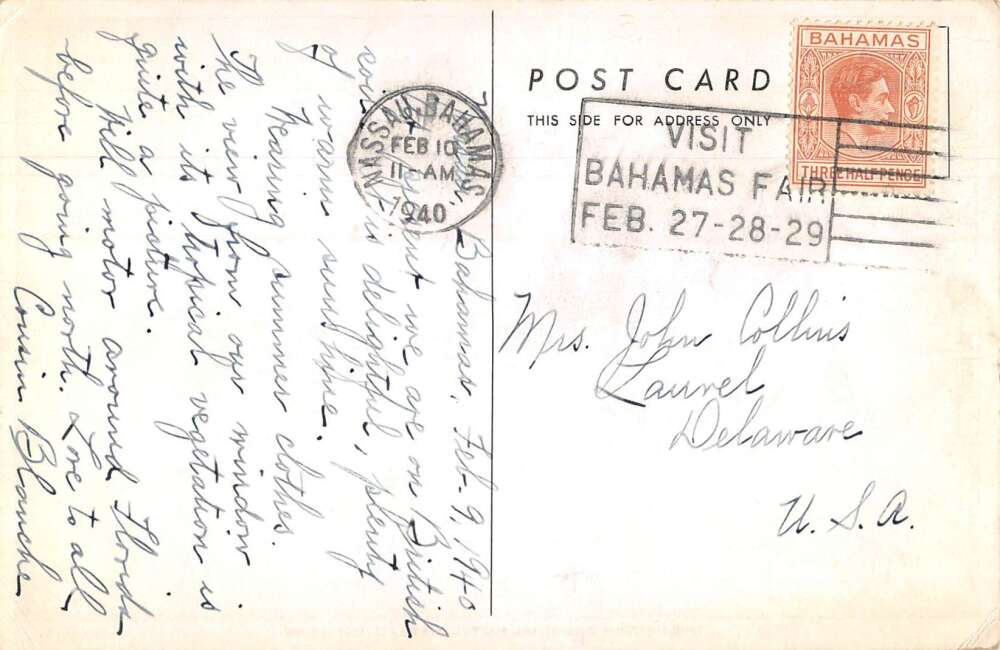 Bahamas, Feb. 9, 1940
we are on British
is delightful, plenty
of warm sunshine.
Wearing summer clothes.
The view from our window
with its tropical vegetation is
quite a picture.
Will motor around Florida
before going north. Love to all
Cousin Blanche
NASSAU, BAHAMAS
FEB 10
11 - AM
1940
POST CARD
THIS SIDE FOR ADDRESS ONLY
BAHAMAS
THREE HALF PENCE
VISIT
BAHAMAS FAIR
FEB. 27-28-29
Mrs. John Collins
Laurel
Delaware
U. S. A.